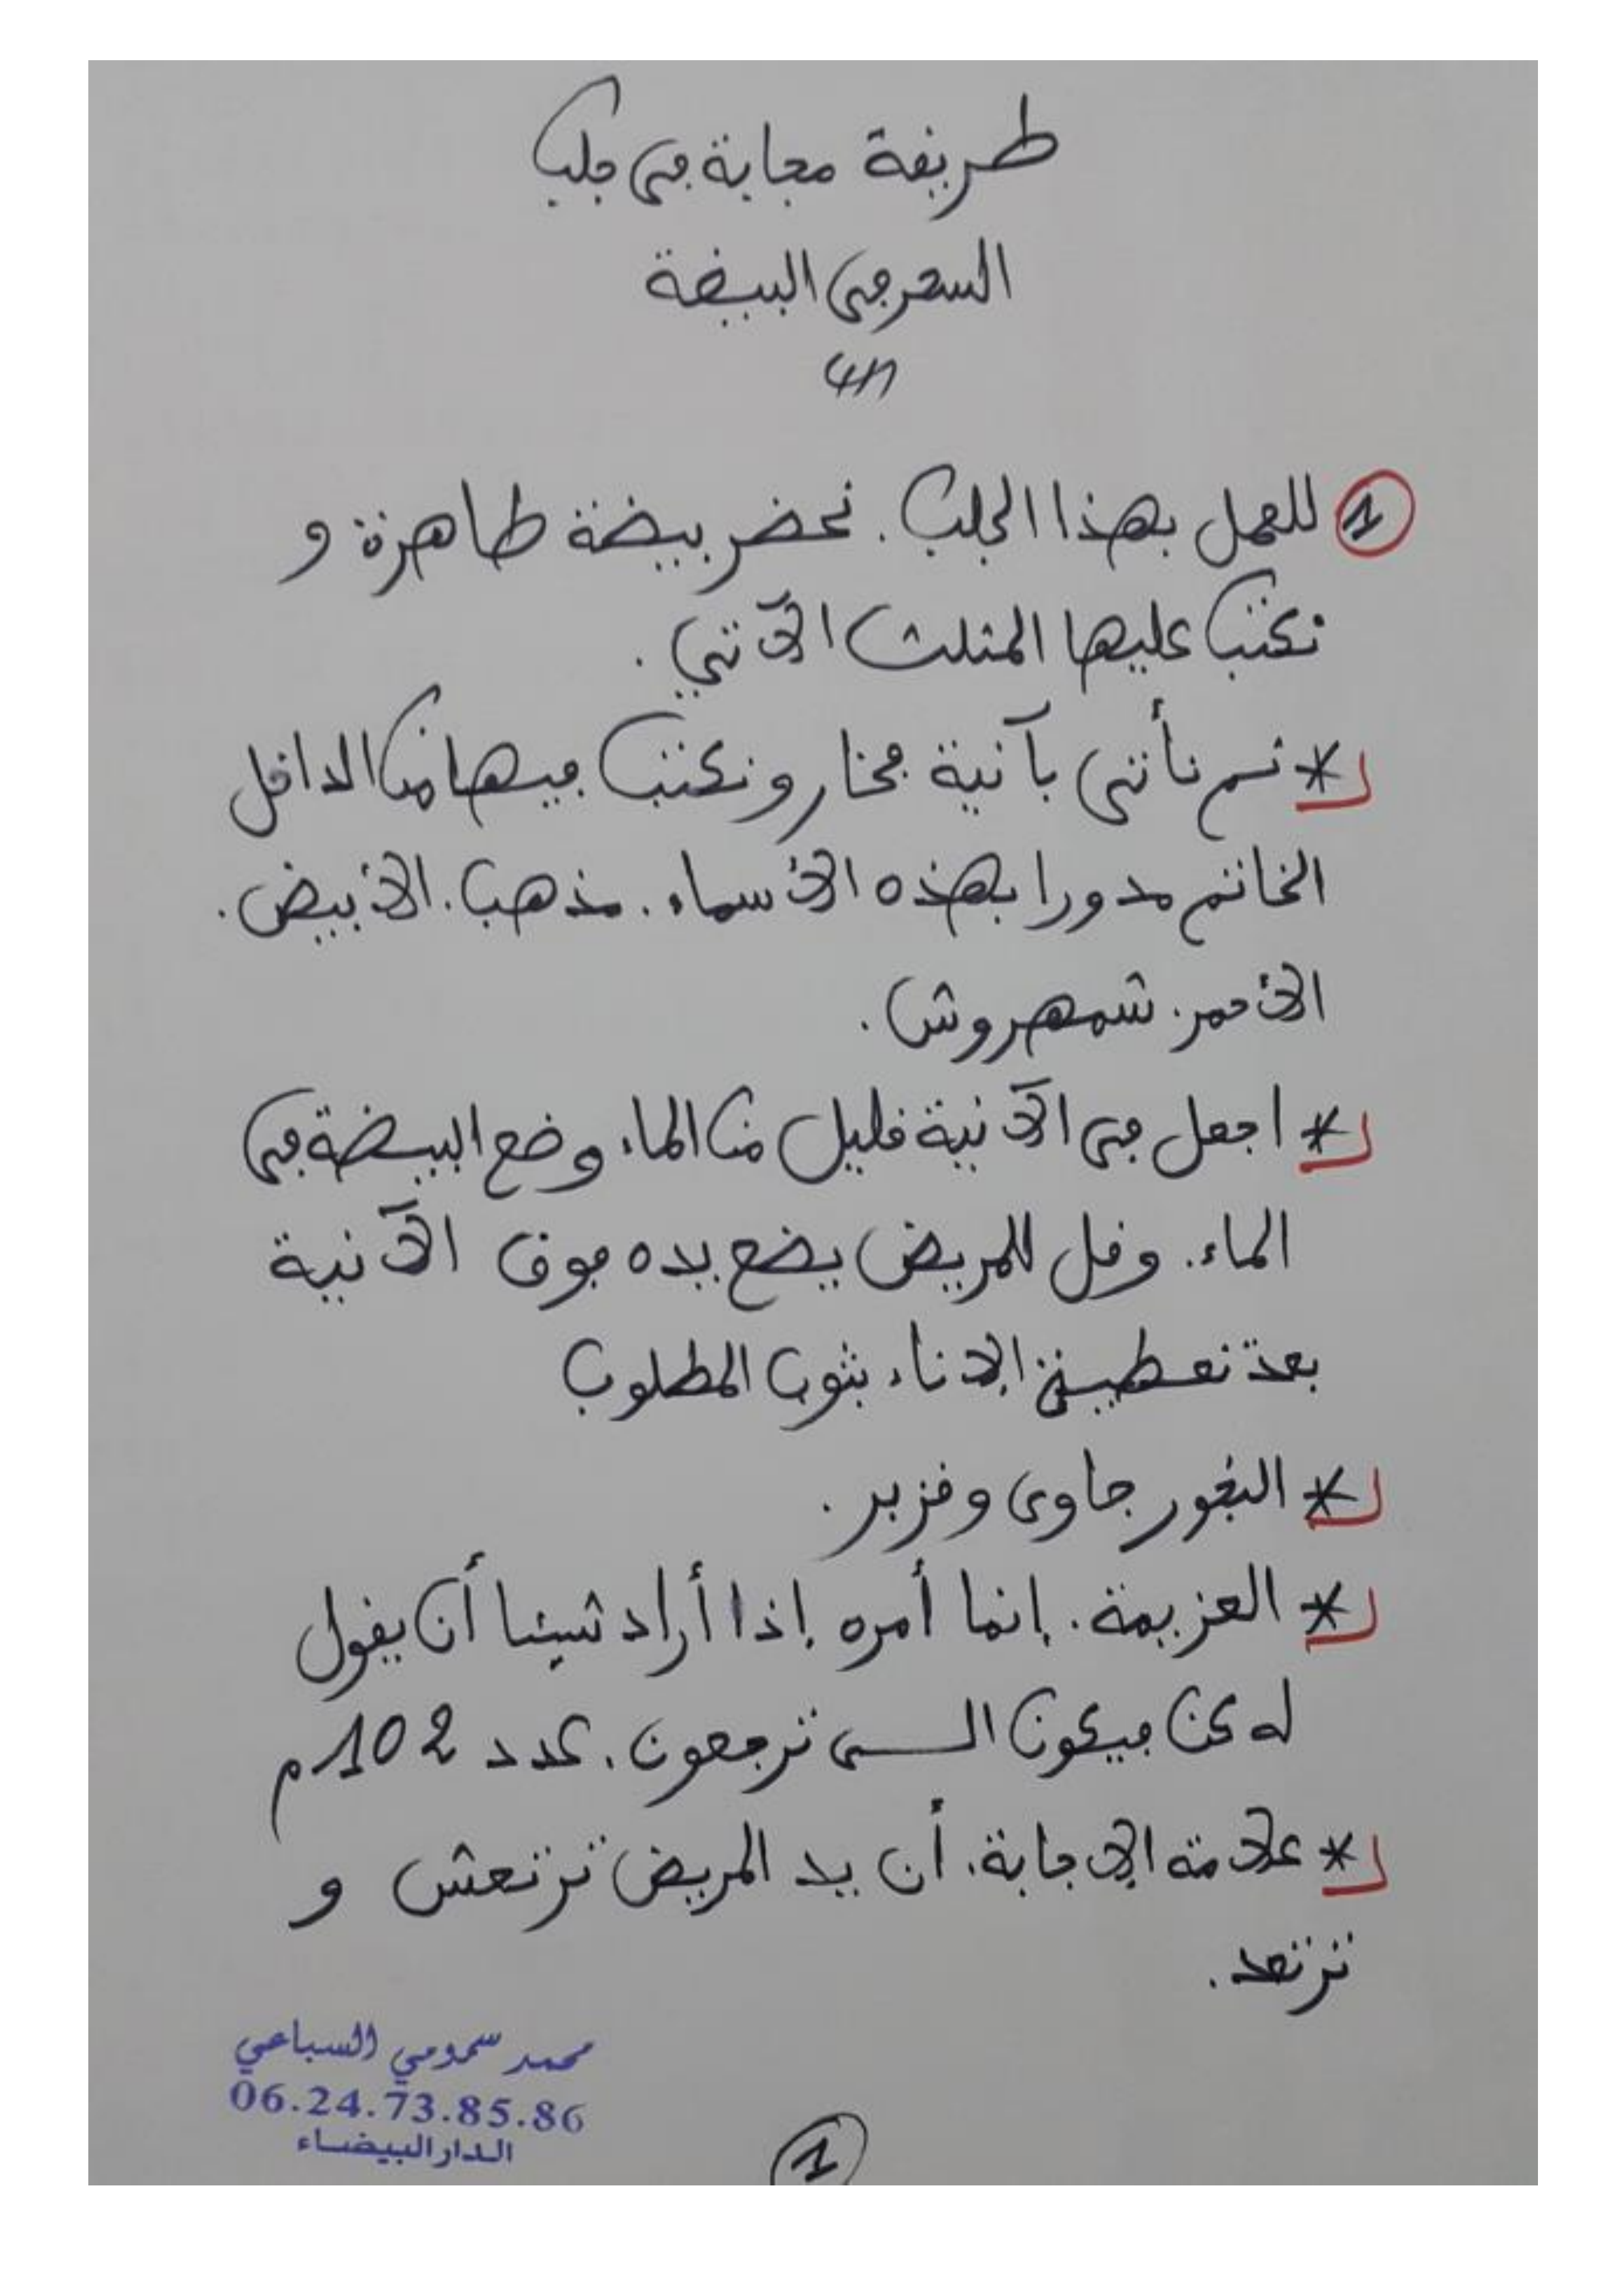 طريقة مجابة في جلب
السحر في البيضة
① للعمل بهذا الجلب. نحضر بيضة طاهرة و
نكتب عليها المثلث الآتي.
* ثم نأتي بآنية فخار ونكتب فيها من الداخل
الخاتم مدورا بهذه الأسماء. مذهب. الأبيض.
الأحمر. شمهروش.
* اجعل في الآنية قليل من الماء، وضع البيضة في
الماء. وقل للمريض يضع يده فوق الآنية
بعد تغطية الإناء بثوب المطلوب
* البخور جاوي وقزبر.
* العزيمة. إنما أمره إذا أراد شيئا أن يقول
له كن فيكون إلى ترجعون. عدد 102 م
* علامة الإجابة. أن يد المريض ترتعش و
ترتعد.
محمد سمومي السباعي
06.24.73.85.86
الدار البيضاء
①